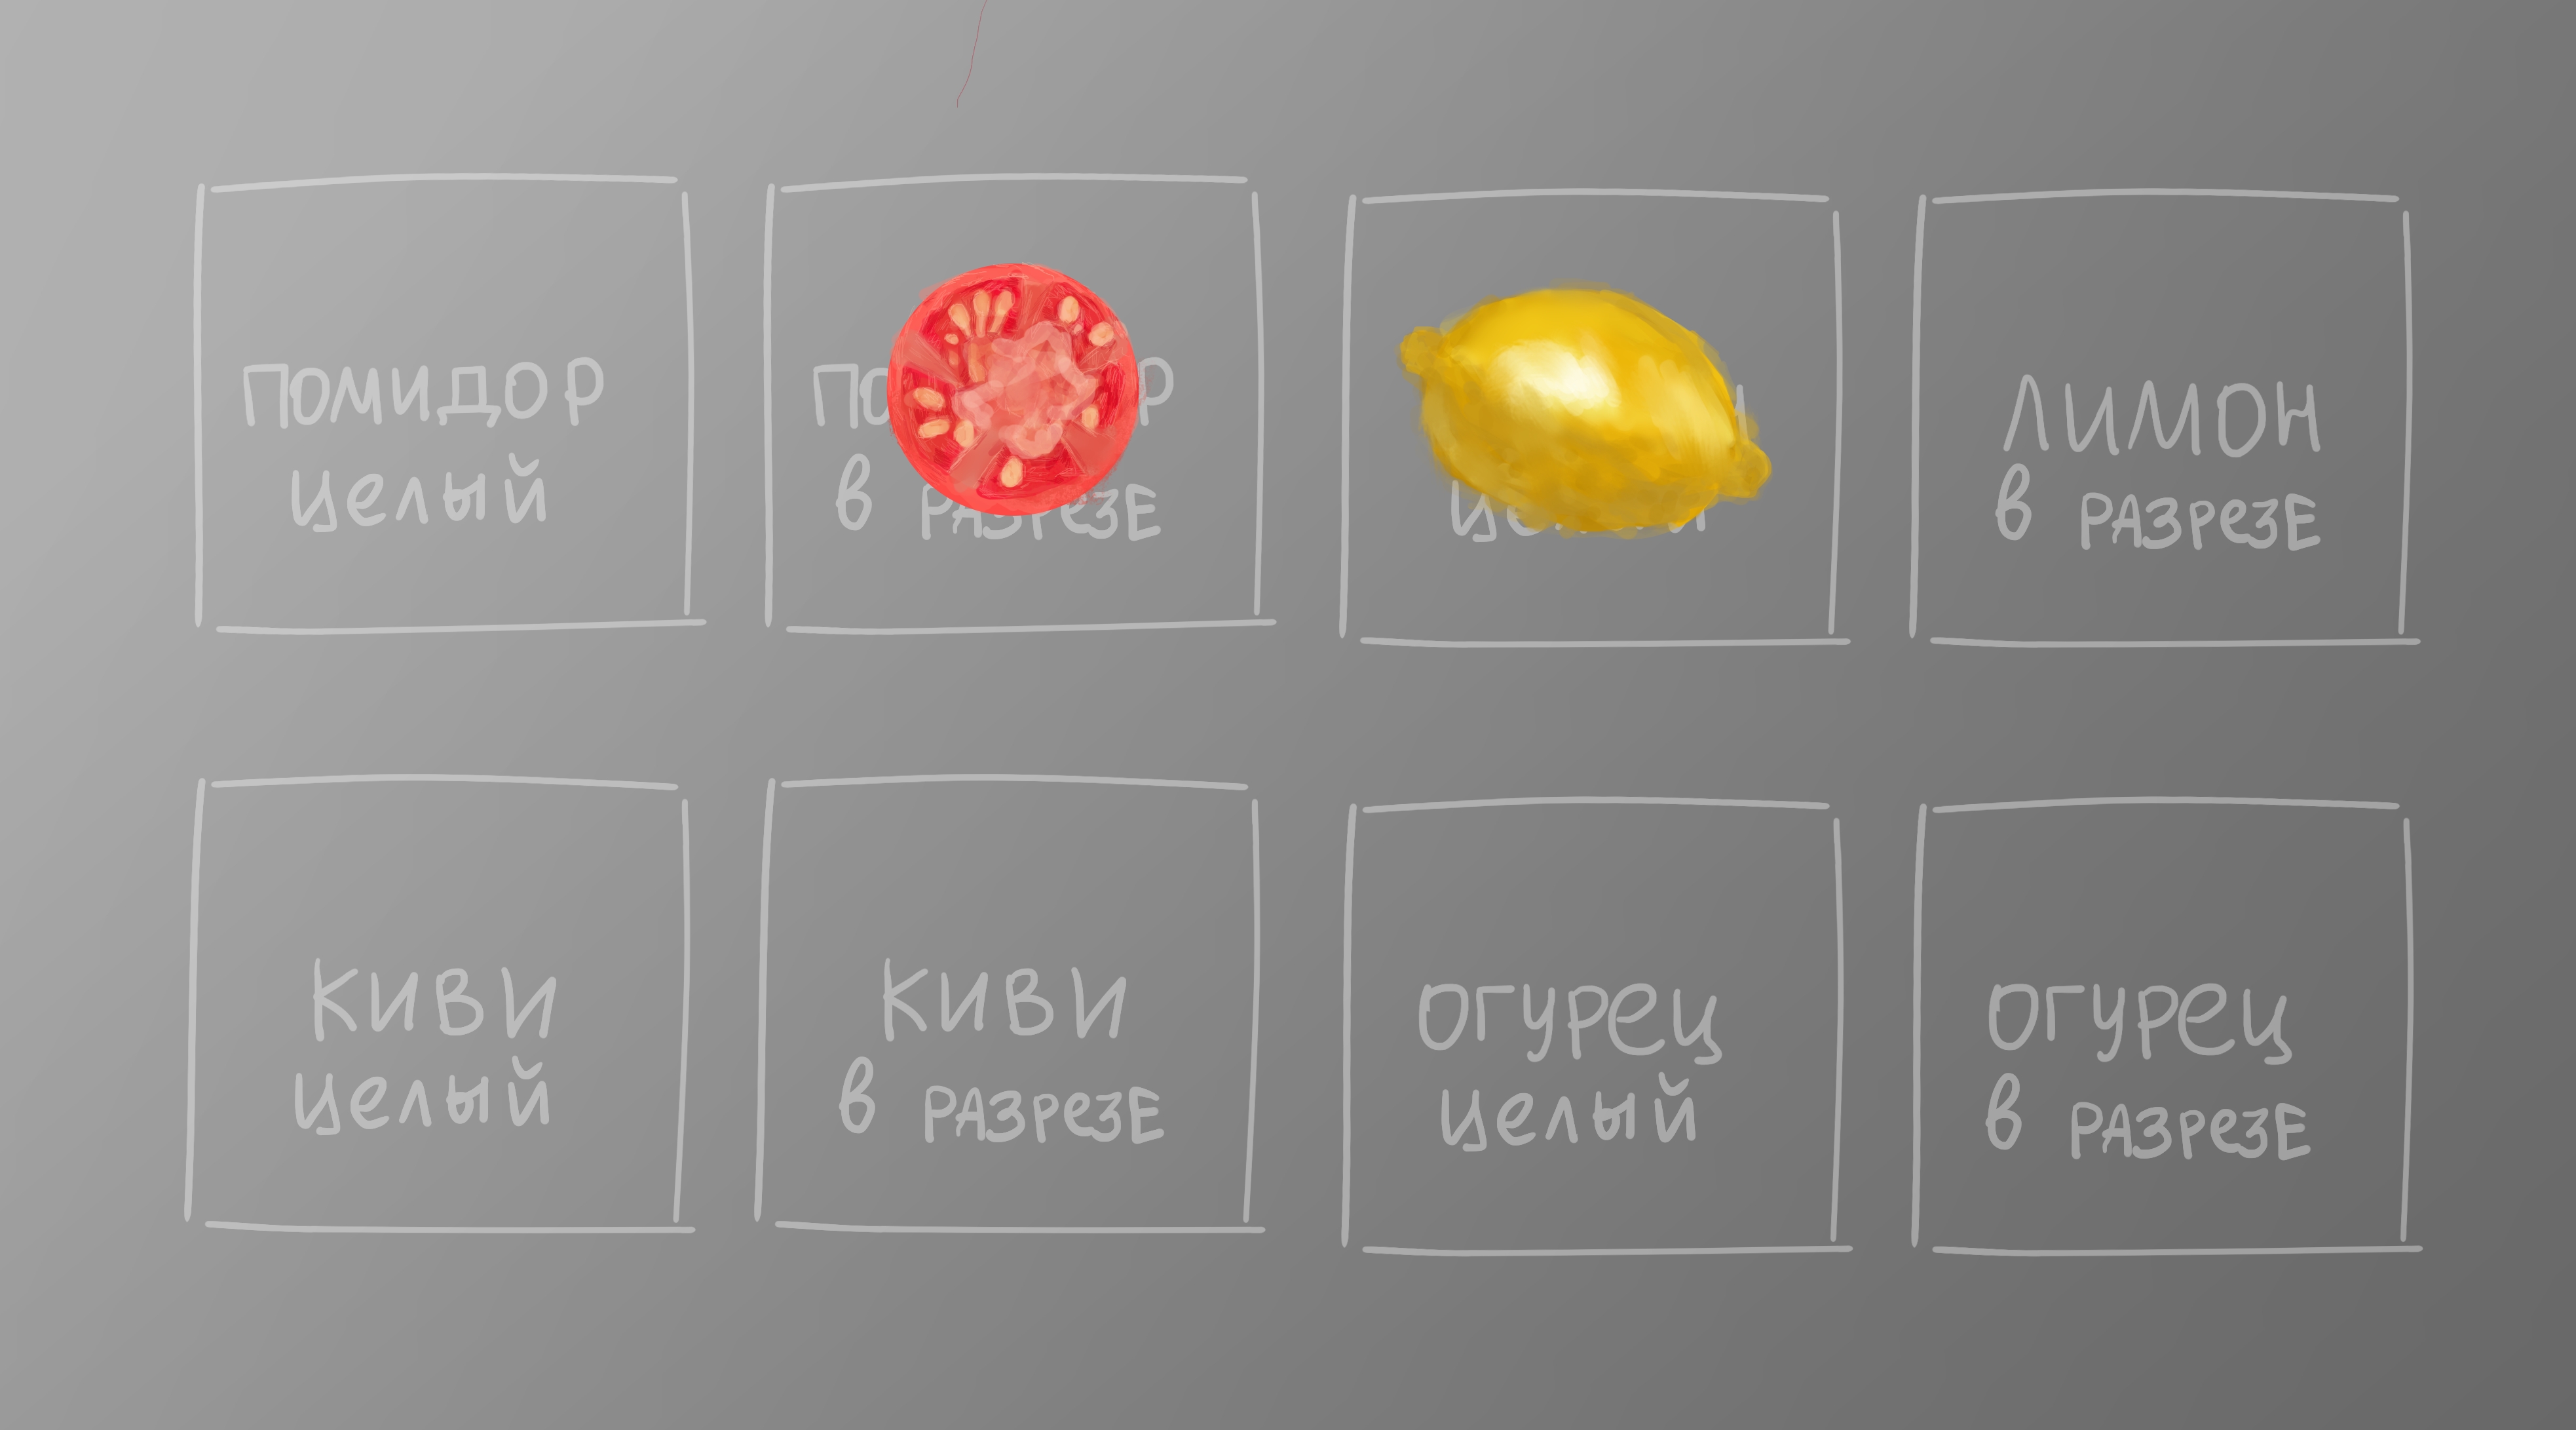 ПОМИДОР
целый
в РАЗРЕЗЕ
ЛИМОН
в РАЗРЕЗЕ
КИВИ
целый
КИВИ
в РАЗРЕЗЕ
ОГУРЕЦ
целый
ОГУРЕЦ
в РАЗРЕЗЕ